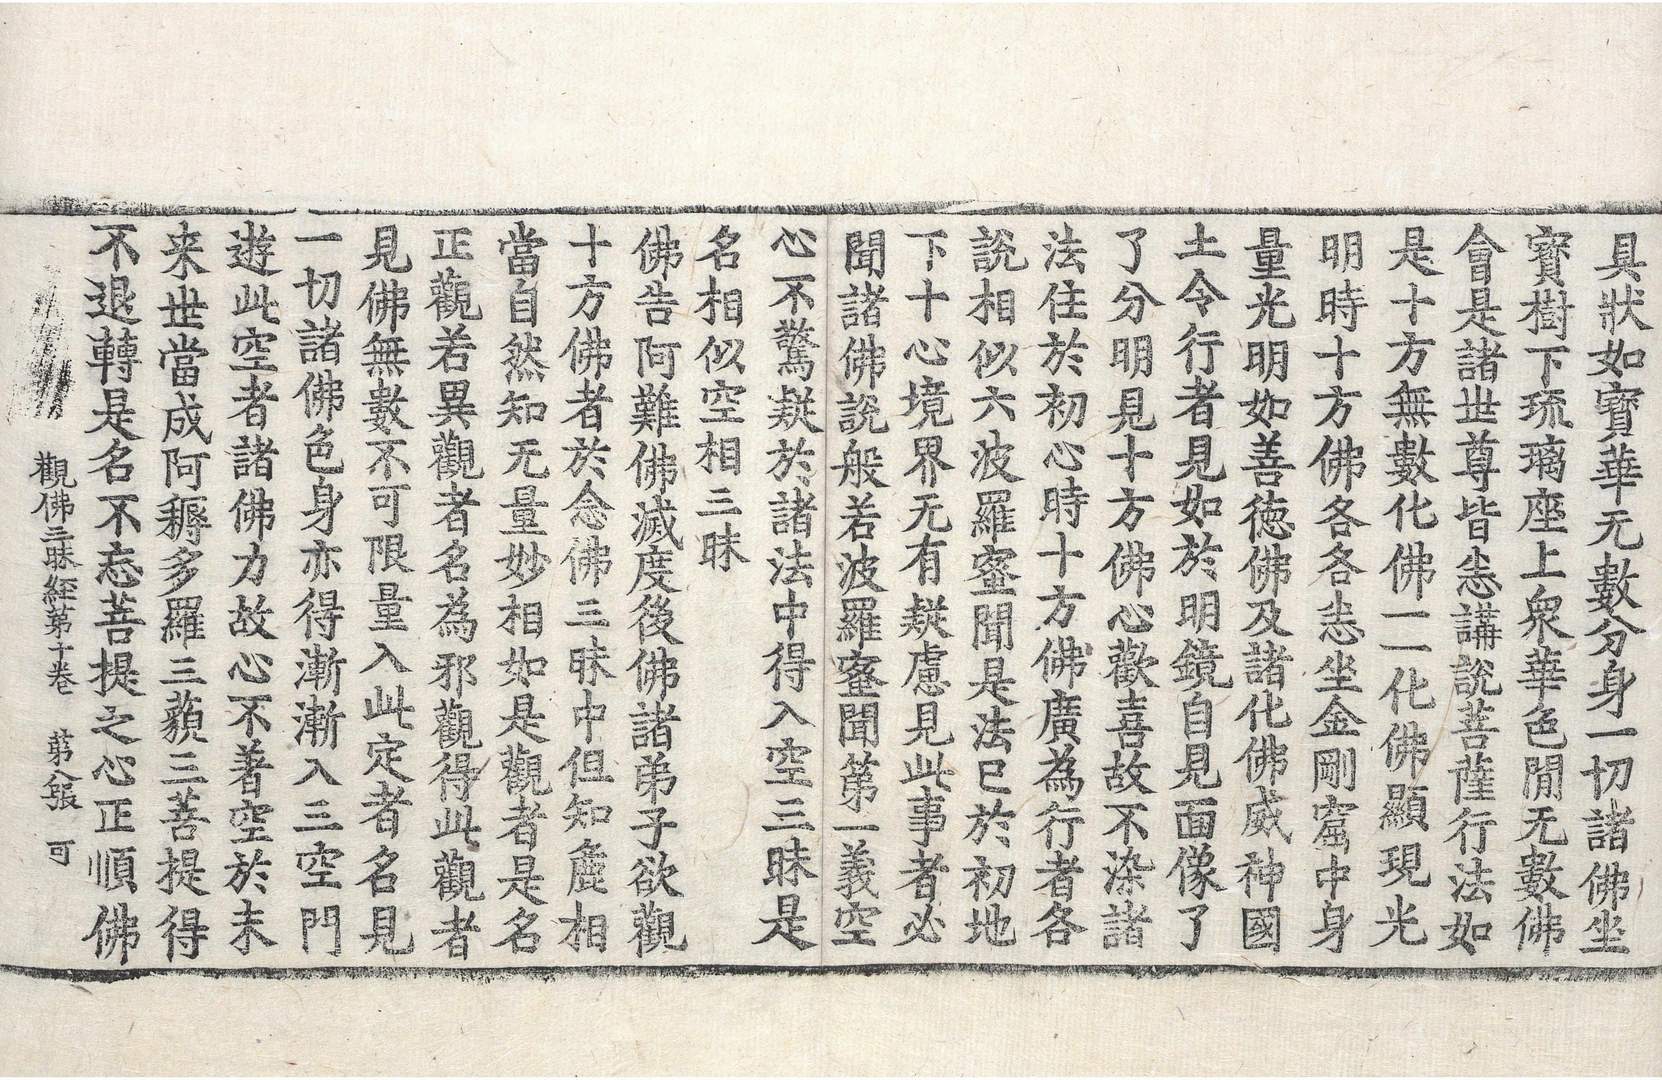 具狀如寶華无數分身一切諸佛坐
寶樹下琉璃座上衆華色閒无數佛
會是諸世尊皆悉講說菩薩行法如
是十方無數化佛一一化佛顯現光
明時十方佛各各悉坐金剛窟中身
量光明如善徳佛及諸化佛威神國
土令行者見如於明鏡自見面像了
了分明見十方佛心歡喜故不染諸
法住於初心時十方佛廣為行者各
說相似六波羅蜜聞是法已於初地
下十心境界无有疑慮見此事者必
聞諸佛說般若波羅蜜聞第一義空
心不驚疑於諸法中得入空三昧是
名相似空相三昧
佛告阿難佛滅度後佛諸弟子欲觀
十方佛者於念佛三昧中但知麁相
當自然知无量妙相如是觀者是名
正觀若異觀者名為邪觀得此觀者
見佛無數不可限量入此定者名見
一切諸佛色身亦得漸漸入三空門
遊此空者諸佛力故心不著空於未
来世當成阿耨多羅三藐三菩提得
不退轉是名不忘菩提之心正順佛
觀佛三昧經第十卷 第八張 可